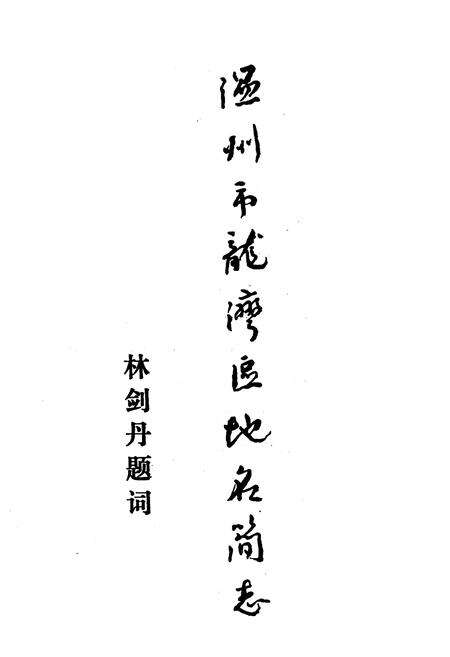 温州市龍灣區地名简志
林剑丹题词